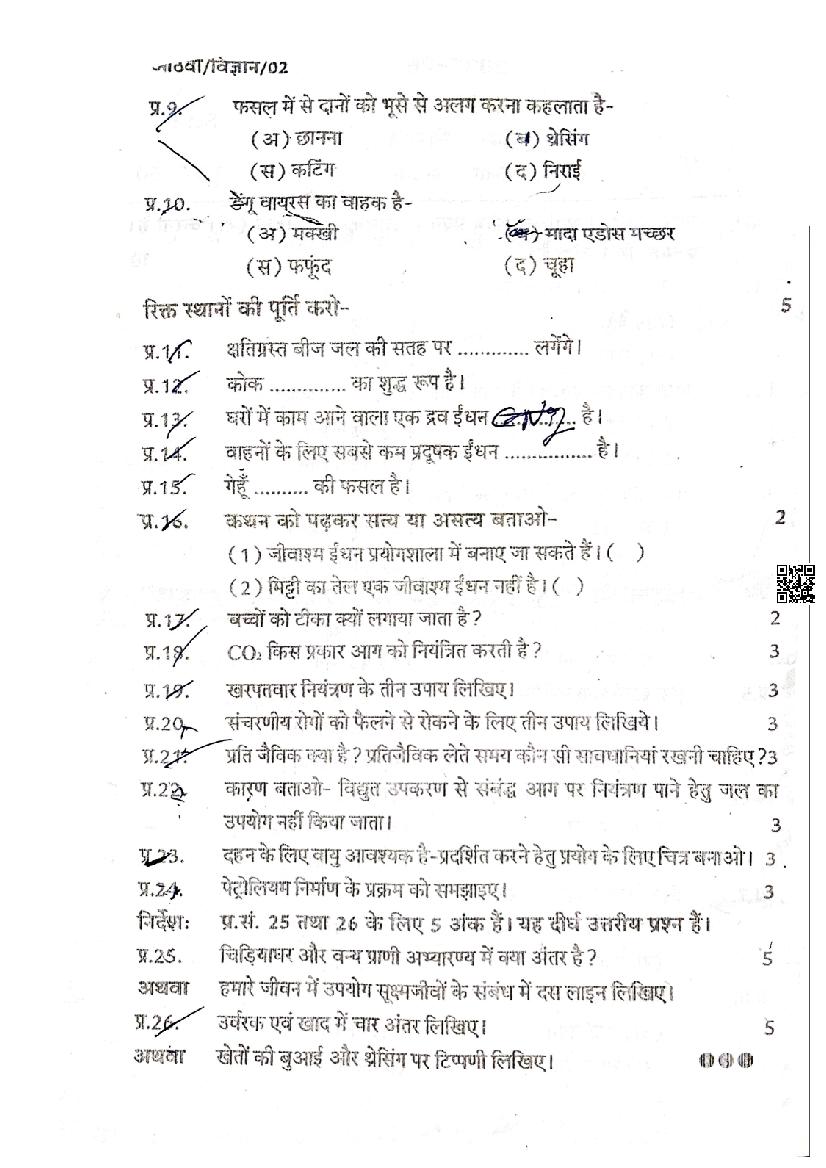 आठवीं/विज्ञान/02
प्र.9. फसल में से दानों को भूसे से अलग करना कहलाता है-
(अ) छानना (ब) थ्रेसिंग
(स) कटिंग (द) निराई
प्र.10. डेंगू वायरस का वाहक है-
(अ) मक्खी (ब) मादा एडीस मच्छर
(स) फफूंद (द) चूहा
रिक्त स्थानों की पूर्ति करो- 5
प्र.11. क्षतिग्रस्त बीज जल की सतह पर ............. लगेंगे।
प्र.12. कोक .............. का शुद्ध रूप है।
प्र.13. घरों में काम आने वाला एक द्रव ईंधन ............... है।
प्र.14. वाहनों के लिए सबसे कम प्रदूषक ईंधन ................ है।
प्र.15. गेहूँ .......... की फसल है।
प्र.16. कथन को पढ़कर सत्य या असत्य बताओ- 2
(1) जीवाश्म ईंधन प्रयोगशाला में बनाए जा सकते हैं। ( )
(2) मिट्टी का तेल एक जीवाश्म ईंधन नहीं है। ( )
प्र.17. बच्चों को टीका क्यों लगाया जाता है? 2
प्र.18. CO₂ किस प्रकार आग को नियंत्रित करती है? 3
प्र.19. खरपतवार नियंत्रण के तीन उपाय लिखिए। 3
प्र.20. संचरणीय रोगों को फैलने से रोकने के लिए तीन उपाय लिखिये। 3
प्र.21. प्रति जैविक क्या है? प्रतिजैविक लेते समय कौन सी सावधानियां रखनी चाहिए? 3
प्र.22. कारण बताओ- विद्युत उपकरण से संबंद्ध आग पर नियंत्रण पाने हेतु जल का
उपयोग नहीं किया जाता। 3
प्र.23. दहन के लिए वायु आवश्यक है-प्रदर्शित करने हेतु प्रयोग के लिए चित्र बनाओ। 3
प्र.24. पेट्रोलियम निर्माण के प्रक्रम को समझाइए। 3
निर्देशः प्र.सं. 25 तथा 26 के लिए 5 अंक हैं। यह दीर्घ उत्तरीय प्रश्न हैं।
प्र.25. चिड़ियाघर और वन्य प्राणी अभ्यारण्य में क्या अंतर है? 5
अथवा हमारे जीवन में उपयोग सूक्ष्मजीवों के संबंध में दस लाइन लिखिए।
प्र.26. उर्वरक एवं खाद में चार अंतर लिखिए। 5
अथवा खेतों की बुआई और थ्रेसिंग पर टिप्पणी लिखिए।